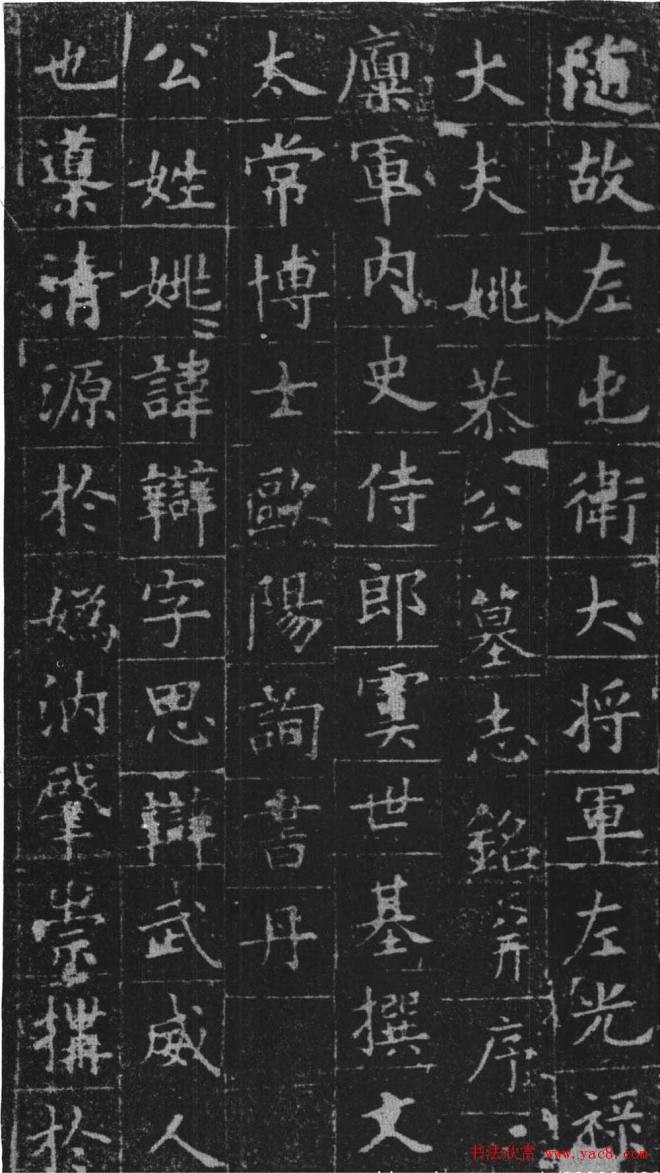 随故左屯衛大将軍左光祿
大夫姚恭公墓志銘并序
內史侍郎虞世基撰文
太常博士歐陽詢書丹
公姓姚諱辯字思辯武威人
也導清源於嬀汭肇崇構於
书法欣赏 www.yac8.com